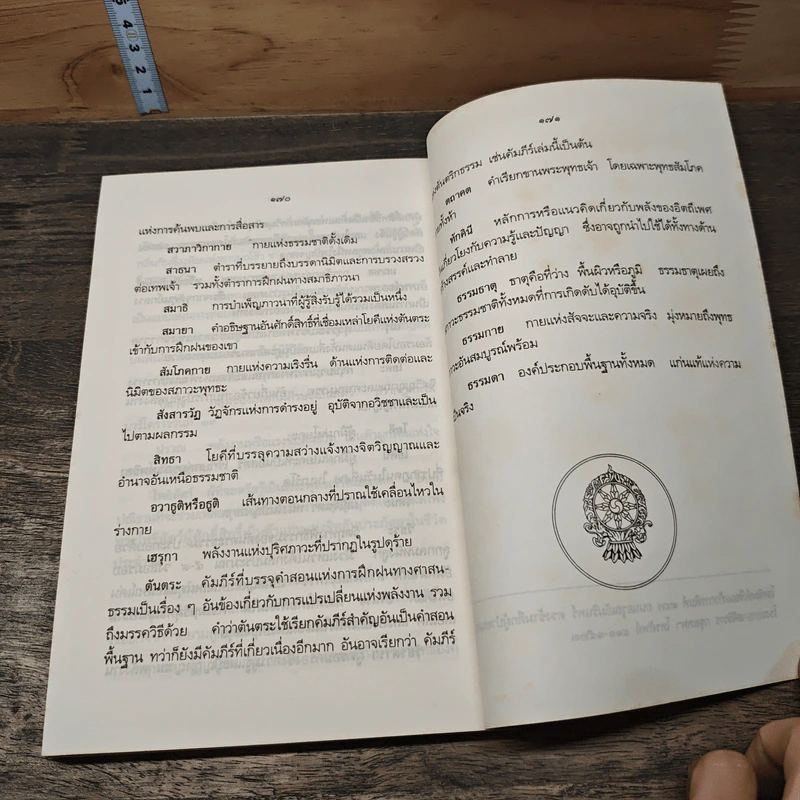 ๑๗๐
แห่งการค้นพบและการสื่อสาร
สวาภาวิกากาย กายแห่งธรรมชาติดั้งเดิม
สาธนา ตำราที่บรรยายถึงบรรดานิมิตและการบวงสรวง
ต่อเทพเจ้า รวมทั้งตำราการฝึกฝนทางสมาธิภาวนา
สมาธิ การบำเพ็ญภาวนาที่ผู้รู้สิ่งรับรู้ได้รวมเป็นหนึ่ง
สมายา คำอธิษฐานอันศักดิ์สิทธิ์ที่เชื่อมเหล่าโยคีแห่งตันตระ
เข้ากับการฝึกฝนของเขา
สัมโภคกาย กายแห่งความเริงรื่น ด้านแห่งการติดต่อและ
นิมิตของสภาวะพุทธะ
สังสารวัฏ วัฏจักรแห่งการดำรงอยู่ อุบัติจากอวิชชาและเป็น
ไปตามผลกรรม
สิทธา โยคีที่บรรลุความสว่างแจ้งทางจิตวิญญาณและ
อำนาจอันเหนือธรรมชาติ
อวาธูติหรือธูติ เส้นทางตอนกลางที่ปราณใช้เคลื่อนไหวใน
ร่างกาย
เฮรุกา พลังงานแห่งปุริศภาวะที่ปรากฏในรูปดุร้าย
ตันตระ คัมภีร์ที่บรรจุคำสอนแห่งการฝึกฝนทางศาสน-
ธรรมเป็นเรื่อง ๆ อันข้องเกี่ยวกับการแปรเปลี่ยนแห่งพลังงาน รวม
ถึงมรรควิธีด้วย คำว่าตันตระใช้เรียกคัมภีร์สำคัญอันเป็นคำสอน
พื้นฐาน ทว่าก็ยังมีคัมภีร์ที่เกี่ยวเนื่องอีกมาก อันอาจเรียกว่า คัมภีร์
๑๗๑
ตันตริกธรรม เช่นคัมภีร์เล่มนี้เป็นต้น
ตถาคต คำเรียกขานพระพุทธเจ้า โดยเฉพาะพุทธสัมโภค
ทักคินี หลักการหรือแนวคิดเกี่ยวกับพลังของอิตถีเพศ
เกี่ยวโยงกับความรู้และปัญญา ซึ่งอาจถูกนำไปใช้ได้ทั้งทางด้าน
สร้างสรรค์และทำลาย
ธรรมธาตุ ธาตุคือที่ว่าง พื้นผิวหรือภูมิ ธรรมธาตุเผยถึง
ธรรมชาติทั้งหมดที่การเกิดดับได้อุบัติขึ้น
ธรรมกาย กายแห่งสัจจะและความจริง มุ่งหมายถึงพุทธ
ภาวะอันสมบูรณ์พร้อม
ธรรมดา องค์ประกอบพื้นฐานทั้งหมด แก่นแท้แห่งความ
เป็นจริง